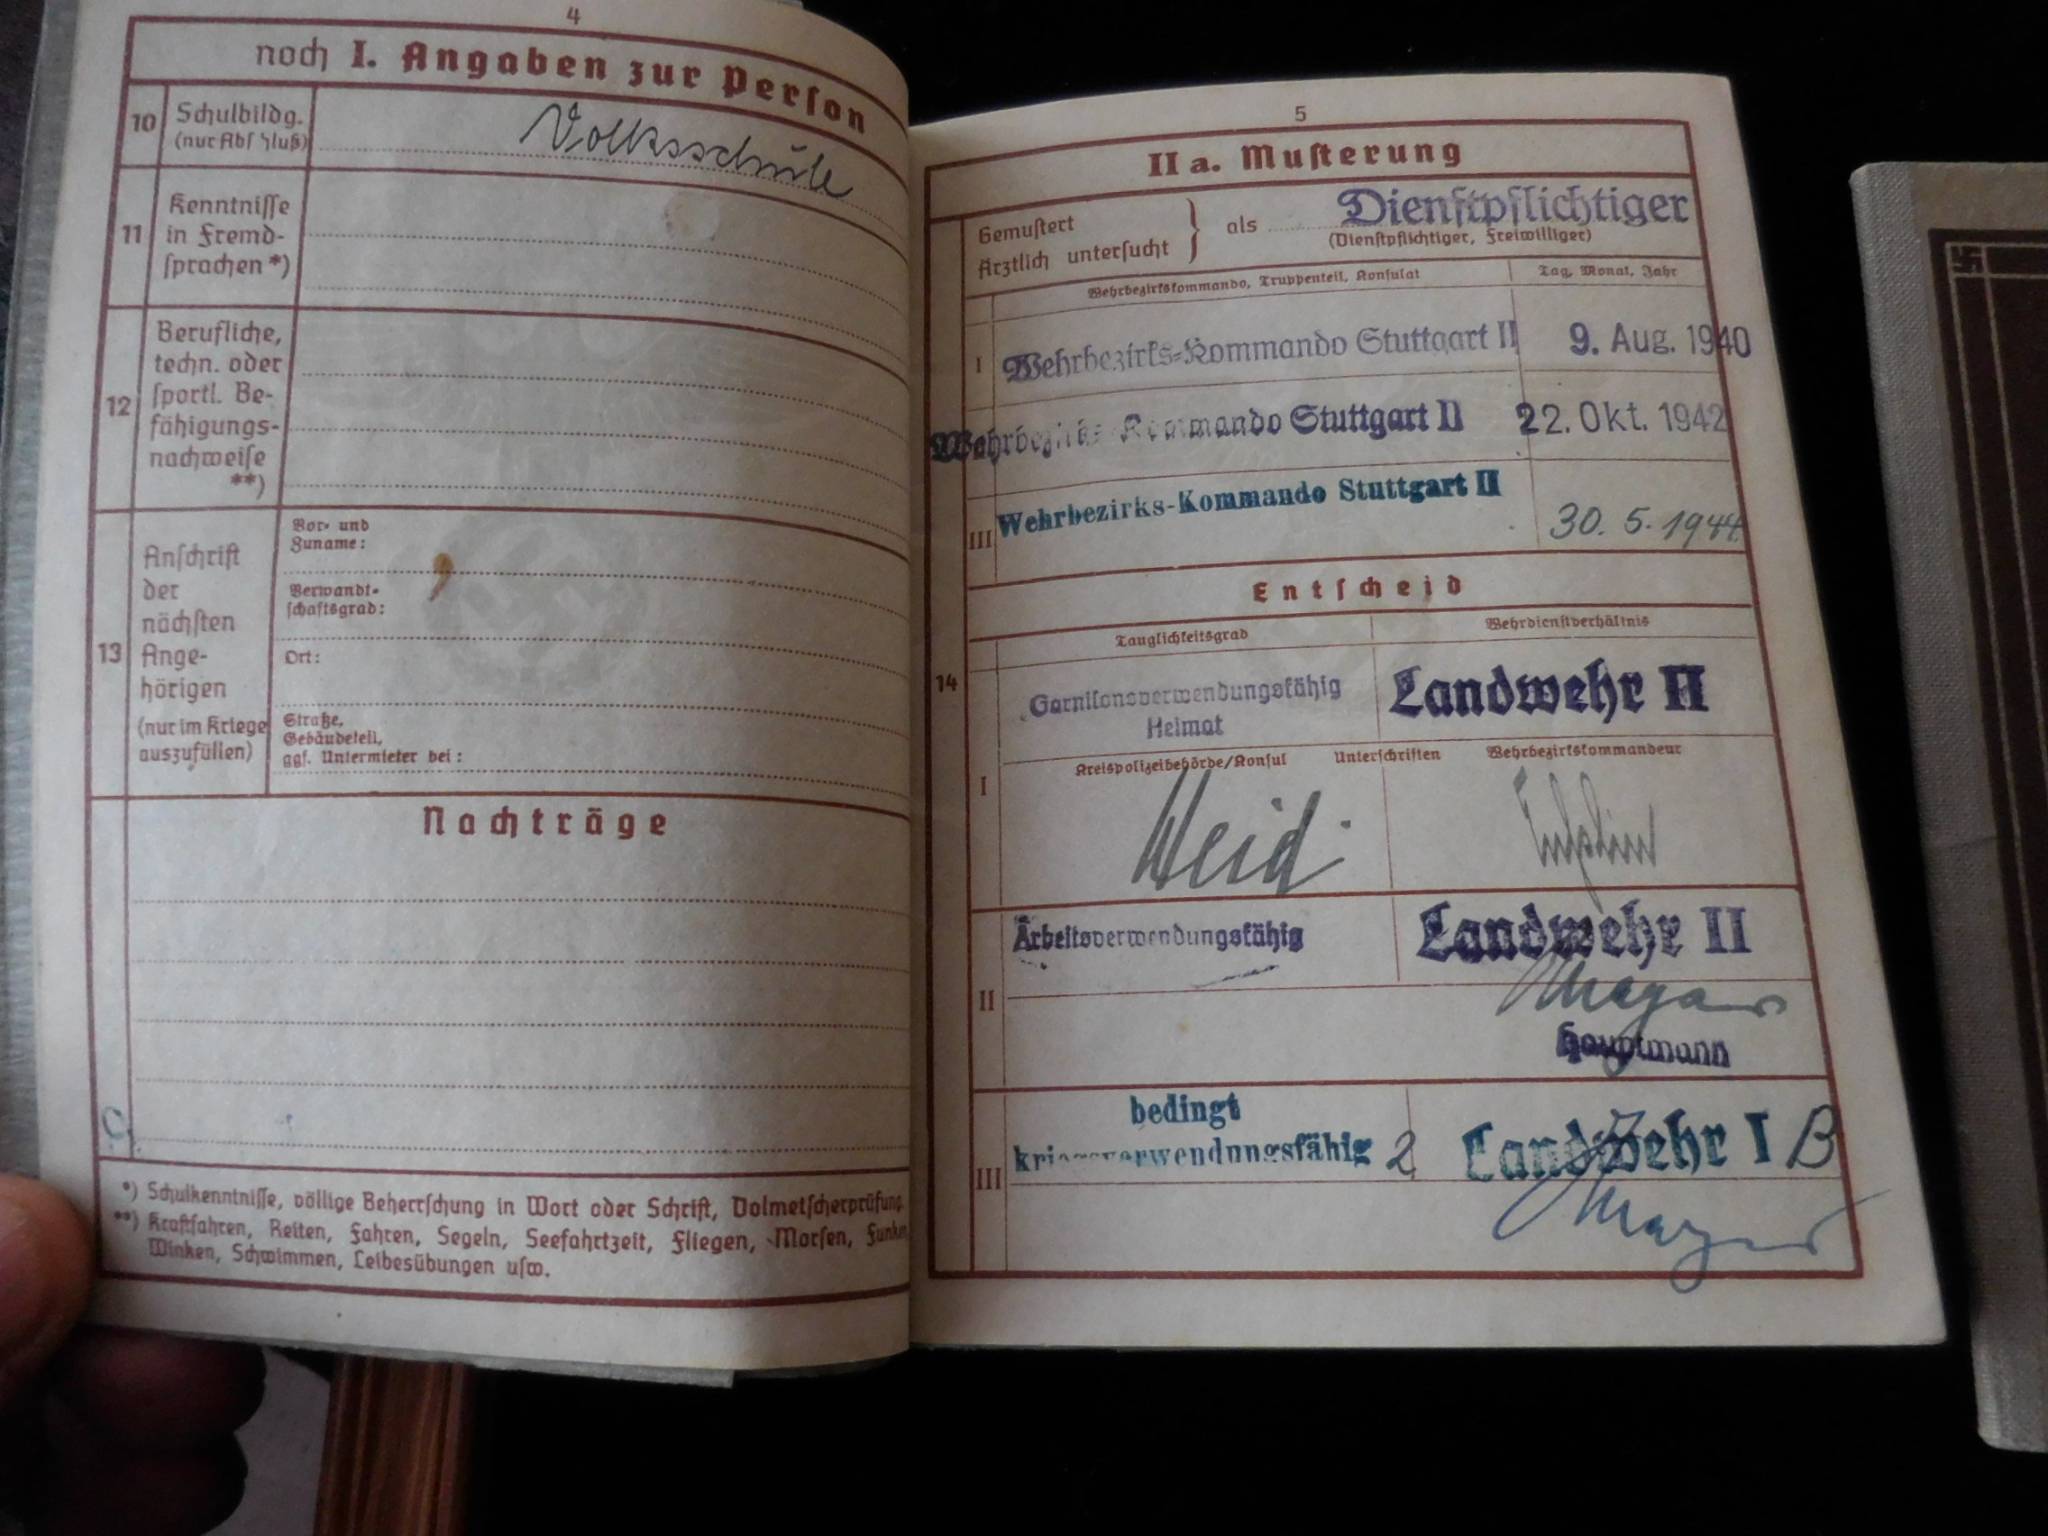 4
noch I. Angaben zur Person
10 Schulbildg.
(nur Abschluß)
Volksschule
11 Kenntnisse
in Fremd-
sprachen *)
12 Berufliche,
techn. oder
sportl. Be-
fähigungs-
nachweise
**)
13 Anschrift
der
nächsten
Ange-
hörigen
(nur im Kriege
auszufüllen)
Vor- und
Zuname:
Verwandt-
schaftsgrad:
Ort:
Straße,
Gebäudeteil,
ggf. Untermieter bei:
Nachträge
*) Schulkenntnisse, völlige Beherrschung in Wort oder Schrift, Dolmetscherprüfung.
**) Kraftfahren, Reiten, Fahren, Segeln, Seefahrtzeit, Fliegen, Morsen, Funken,
Winken, Schwimmen, Leibesübungen usw.
5
IIa. Musterung
Gemustert
Ärztlich untersucht } als Dienstpflichtiger
(Dienstpflichtiger, Freiwilliger)
Wehrbezirkskommando, Truppenteil, Konsulat
Tag, Monat, Jahr
I Wehrbezirks-Kommando Stuttgart II 9. Aug. 1940
Wehrbezirks-Kommando Stuttgart II 22. Okt. 1942
III Wehrbezirks-Kommando Stuttgart II 30. 5. 1944
Entscheid
14
Tauglichkeitsgrad
Wehrdienstverhältnis
I
Garnisonsverwendungsfähig
Heimat
Landwehr II
Kreispolizeibehörde/Konsul Unterschriften Wehrbezirkskommandeur
Weid
II
Arbeitsverwendungsfähig
Landwehr II
Mayer
Hauptmann
III
bedingt
kriegsverwendungsfähig 2
Landwehr I B
Mayer